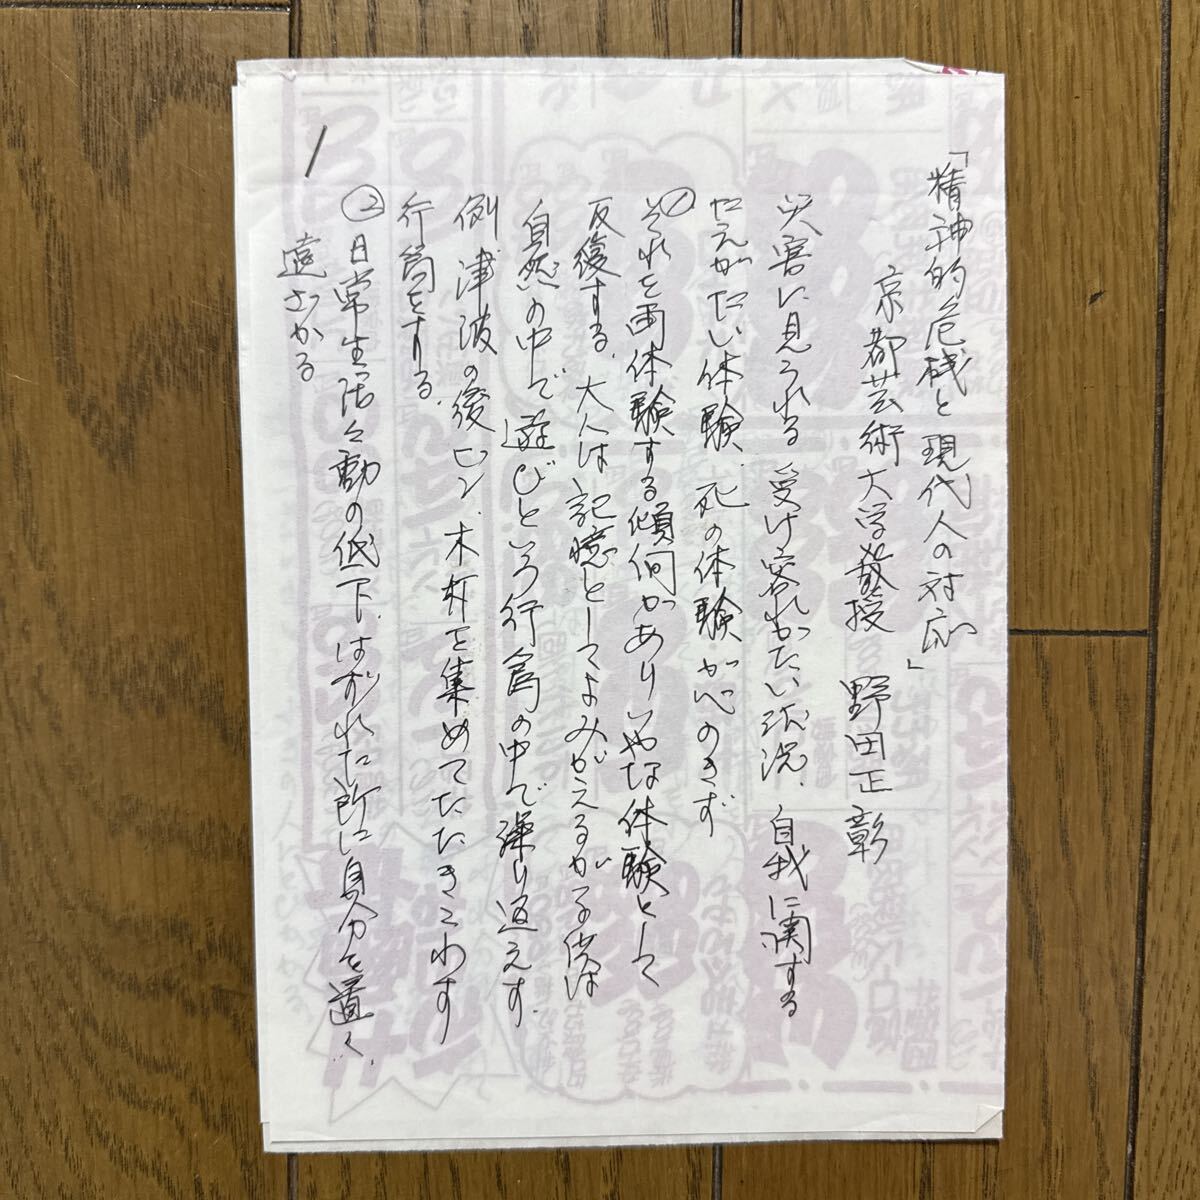 「精神的危機と現代人の対応」
京都芸術大学教授 野田正彰
災害に見られる 受け容れがたい状況、自我に関する
たえがたい体験、死の体験が心のきず
① それを再体験する傾向がありいやな体験として
反復する、大人は記憶としてよみがえるが子供は
自然の中で遊びという行為の中で繰り返えす
例 津波の後ビン、木材を集めてたたきこわす
行為をする。
② 日常生活々動の低下、はずれた所に自分を置く、
遠ざかる
1